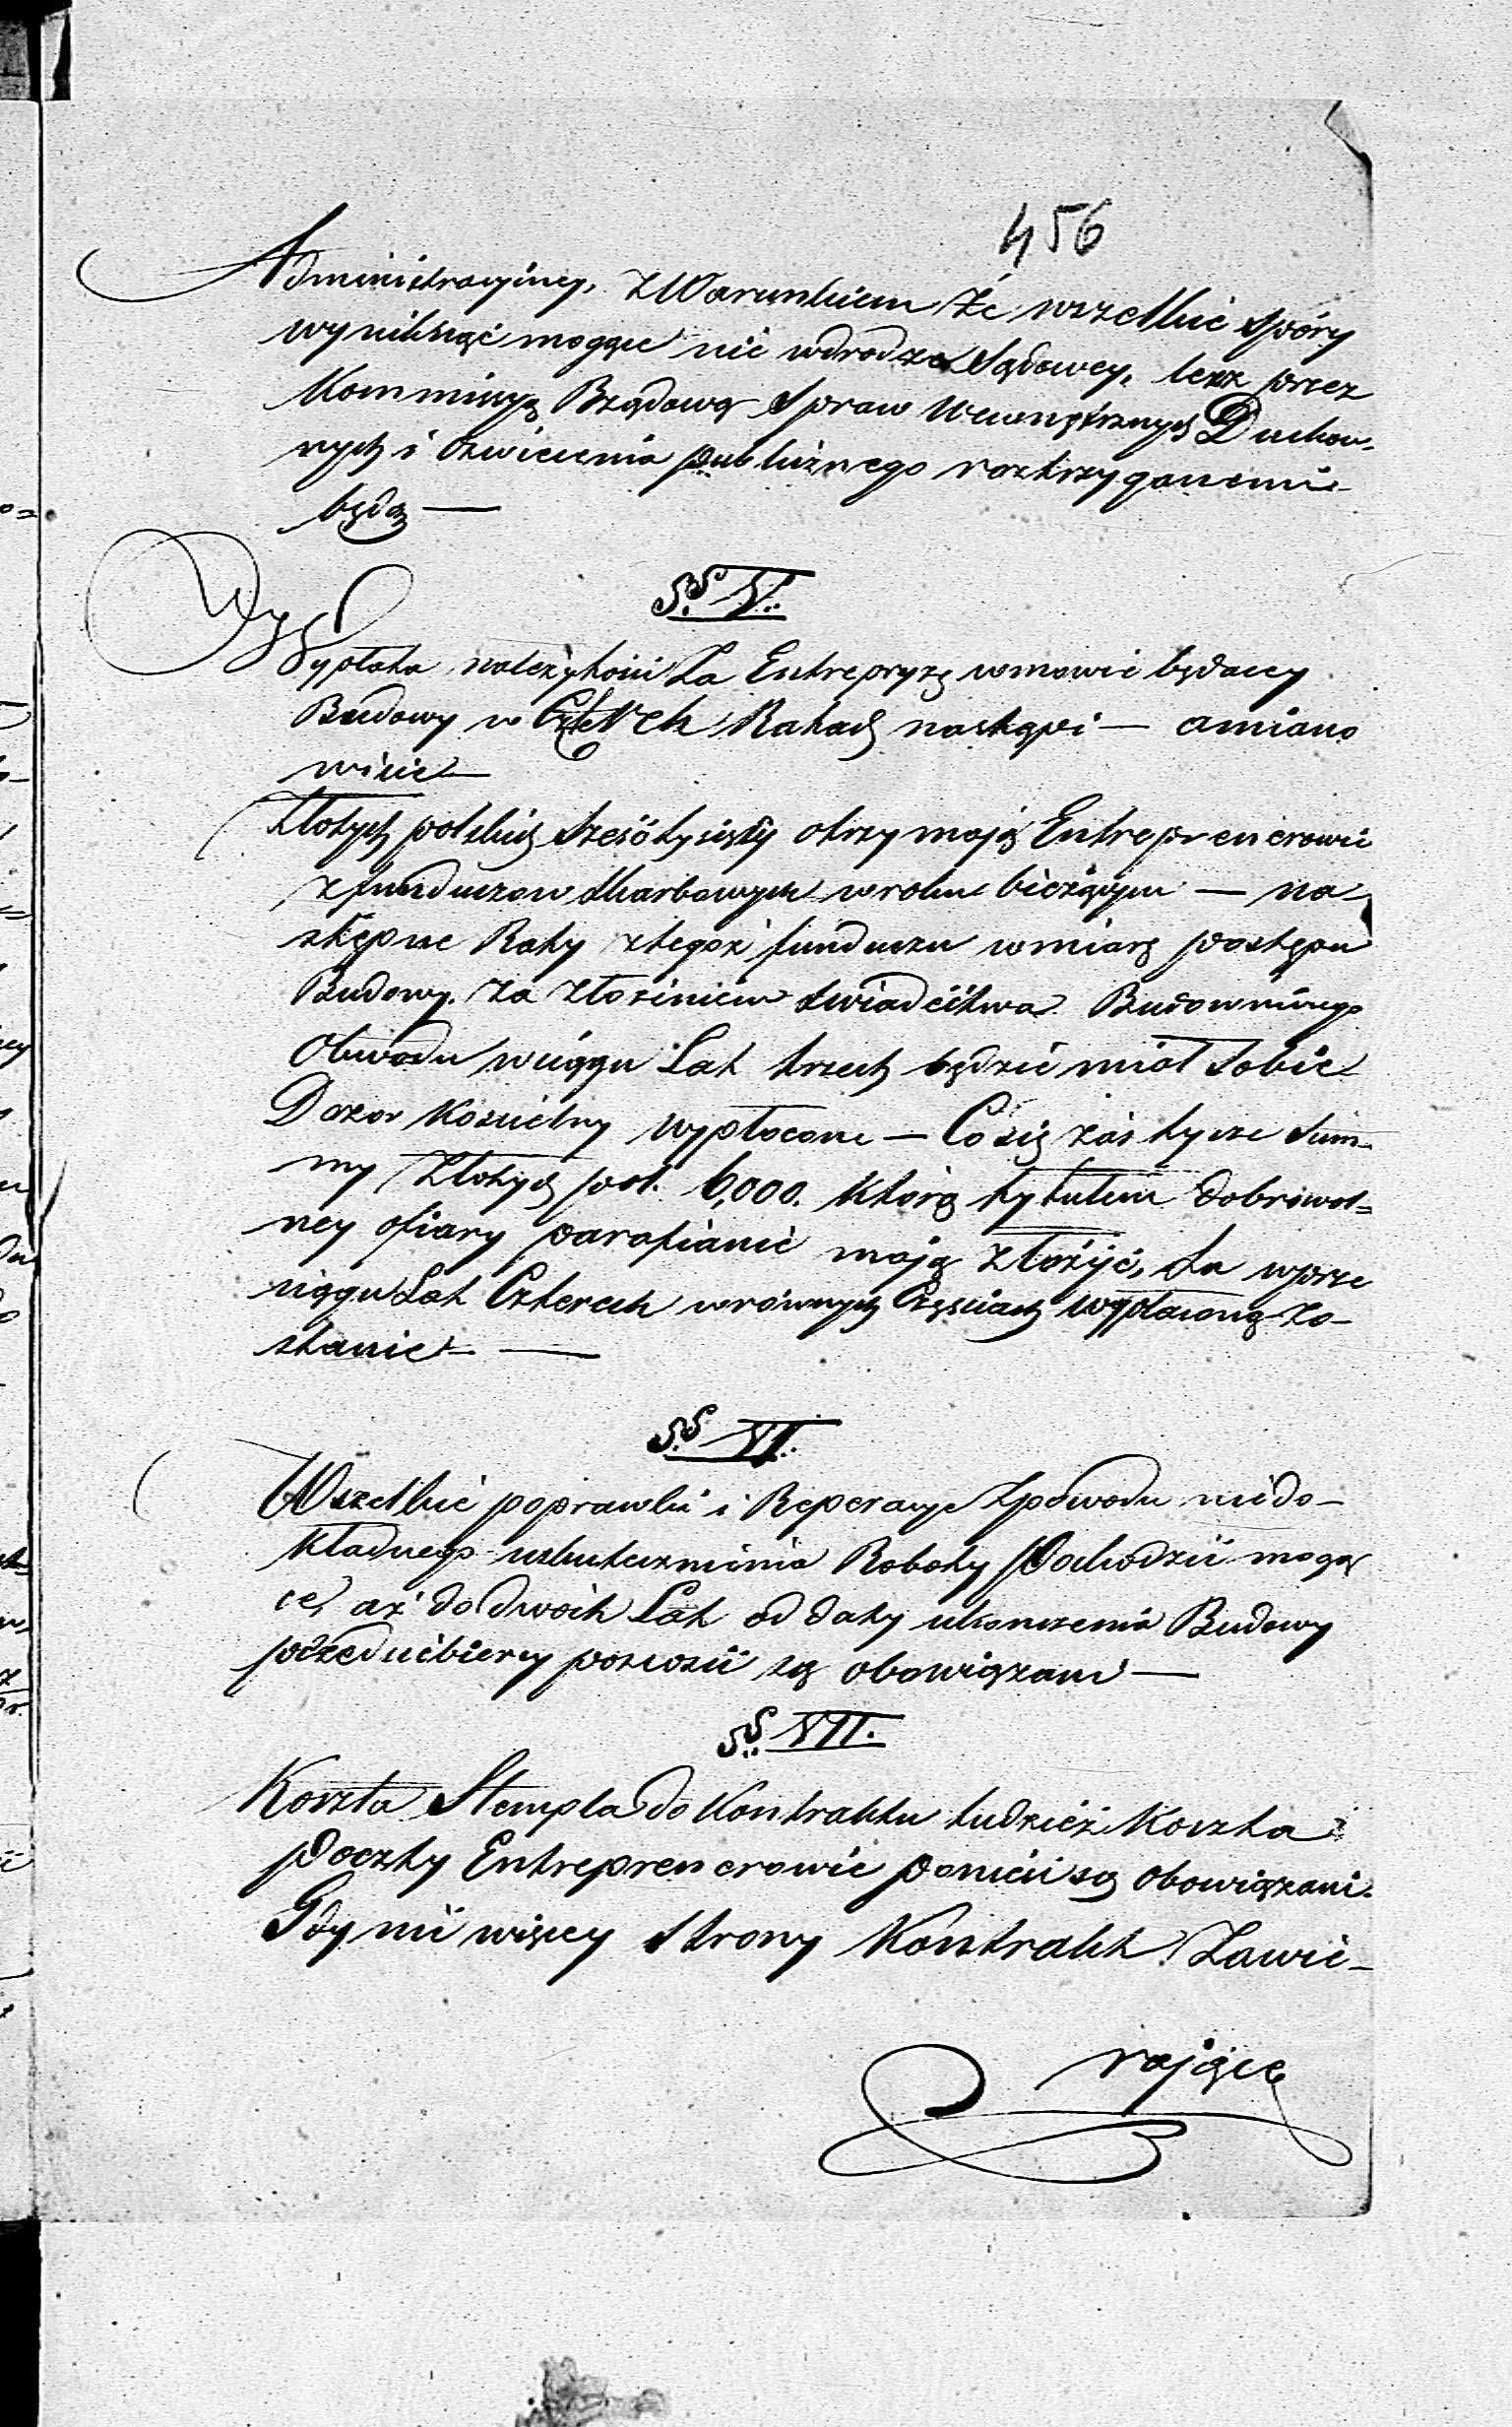 456
Administracyiney, z Warunkiem że wszelkie spóry
wyniknąć mogące nie wdrodze Sądowey, lecz przez
Kommissyą Rządową Spraw Wewnętrznych Duchow-
nych i Oświecenia publicznego roztrzyganemi
będą —
§§ V.
Wypłata należytości Za Entrepryzę womowie będącey
Budowy w Czterech Ratach nastąpi — amiano
wicie —
Złotych polskich sześć tysięcy otrzymają Entreprenerowie
z funduszow skarbowych wroku bieżącym — na-
stępne Raty ztegoż funduszu wmiarę postępu
Budowy, za złożeniem świadectwa Budowniczego
Obwodu wciągu Lat trzech będzie miał sobie
Dozor Kościelny wypłacone — Co się zaś tycze Sum-
my Złotych pol. 6,000. którą tytułem dobrowol=
ney ofiary parafianie mają złożyć, ta wprze
ciągu Lat Czterech wrównych Częściach wypłaconą zo-
stanie —
§§ VI.
Wszelkie poprawki i Reperacye zpowodu niedo-
kładnego uskutecznienia Roboty Pochodzić mogą
ce, aż do dwóch Lat od daty ukonczenia Budowy
przedsiębiercy ponosić są obowiązani —
§§ VII.
Koszta Stempla do Kontraktu tudzież Koszta
Poczty Entreprenerowie ponieść są obowiązani.
Gdy nie więcey strony Kontrakt Zawie-
rające